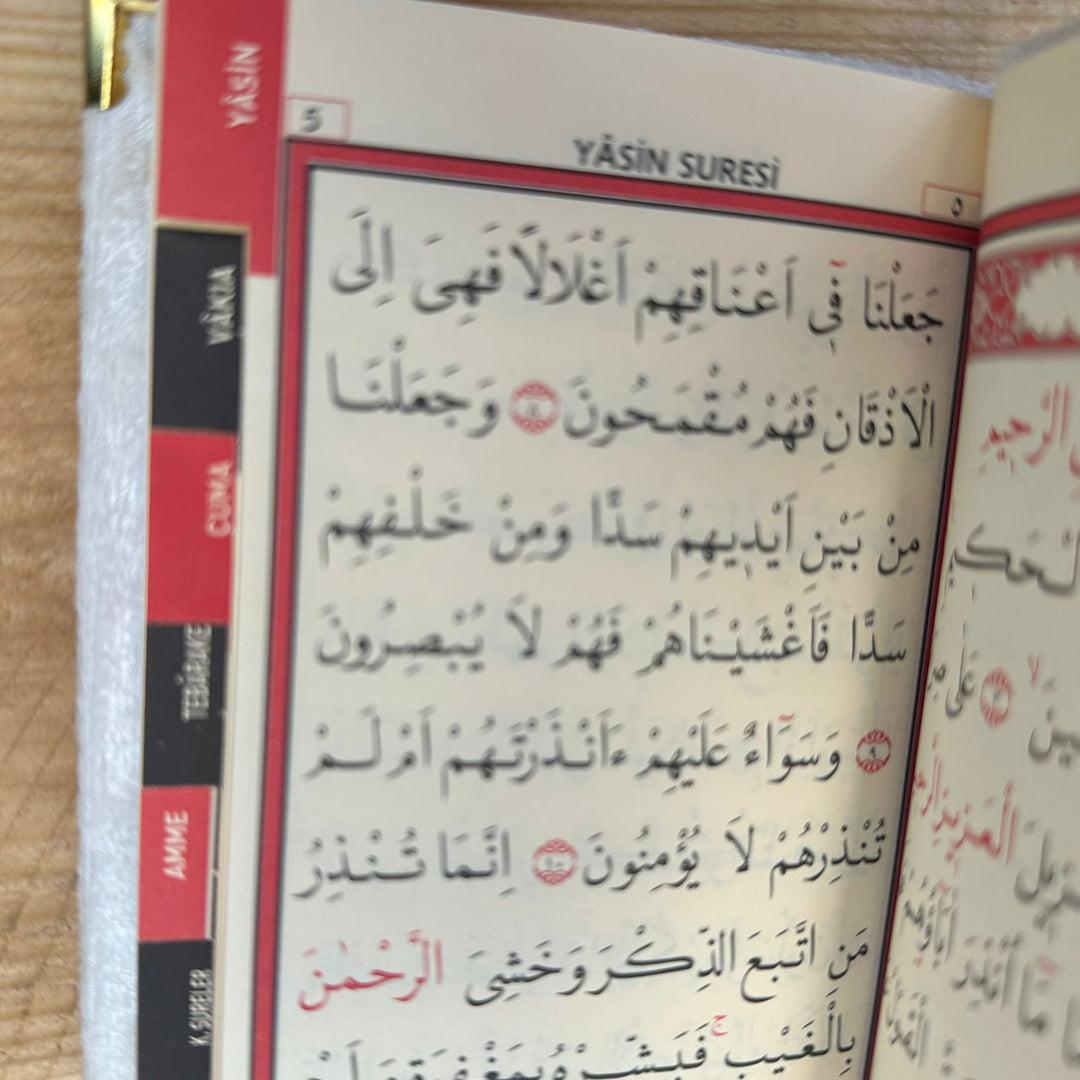 YÂSİN
VÂKIA
CUMA
TEBÂRAKE
AMME
K.SURELER
5
YÂSİN SURESİ
٥
جَعَلْنَا فٓي اَعْنَاقِهِمْ اَغْلَالًا فَهِىَ اِلَى
الْاَذْقَانِ فَهُمْ مُقْمَحُونَ ٨ وَجَعَلْنَا
مِنْ بَيْنِ اَيْدٖيهِمْ سَدًّا وَمِنْ خَلْفِهِمْ
سَدًّا فَاَغْشَيْنَاهُمْ فَهُمْ لَا يُبْصِرُونَ
٩ وَسَوَٓاءٌ عَلَيْهِمْ ءَاَنْذَرْتَهُمْ اَمْ لَمْ
تُنْذِرْهُمْ لَا يُؤْمِنُونَ ١٠ اِنَّمَا تُنْذِرُ
مَنِ اتَّبَعَ الذِّكْرَ وَخَشِىَ الرَّحْمٰنَ
بِالْغَيْبِ ج فَبَشِّرْهُ بِمَغْفِرَةٍ
الرَّحٖيمِ
عَلٰى
الْعَزٖيزِ
مَٓا اُنْذِرَ